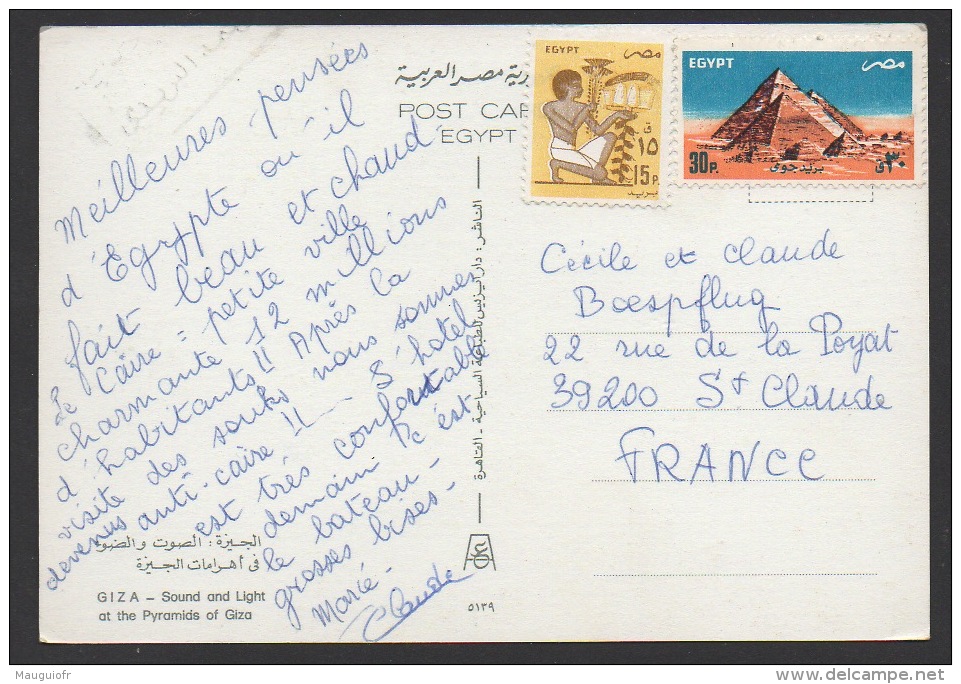 Meilleures pensées
d'Egypte où il
fait beau et chaud
Le Caire = petite ville
charmante 12 millions
d'habitants!! Après la
visite des souks nous sommes
devenus anti-caire!! - L'hôtel
est très confortable
demain c'est
le bateau -
grosses bises -
Marie -
Claude
رية مصر العربية
POST CAR
EGYPT
الناشر : دار ايزيس للطباعة السياحية - القاهرة
EGYPT مصر
ق ١٥
15 P.
بريد
EGYPT مصر
30 P. بريد جوي ق ٣٠
Cécile et Claude
Boespflug
22 rue de la Poyat
39200 St Claude
FRANCE
الجيزة : الصوت والضوء
في أهرامات الجيزة
GIZA – Sound and Light
at the Pyramids of Giza
٥١٣٩
Mauguiofr
delcampe.net